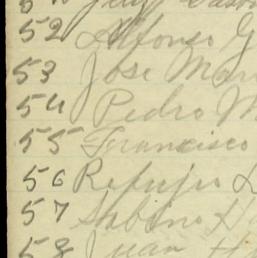 52 Alfonso G
53 Jose Mar
54 Pedro M
55 Francisco
56 Refujio
57 Sabino
58 Juan H